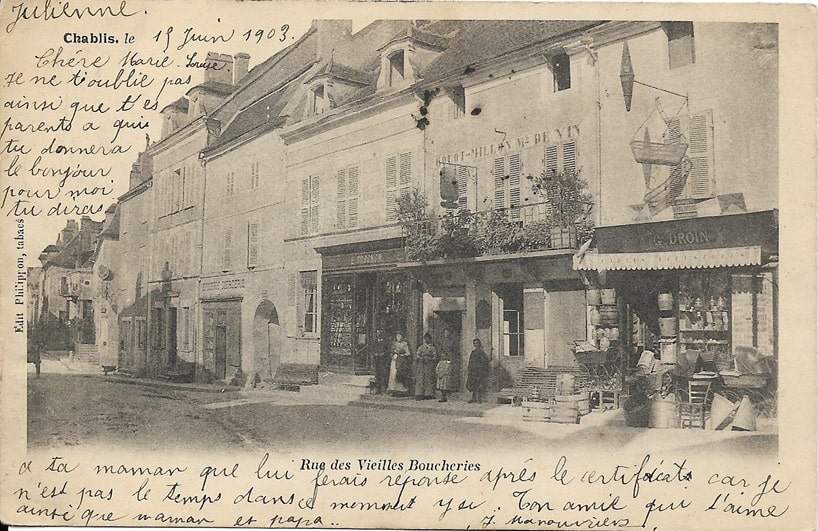 Julienne.
Chablis, le 15 Juin 1903.
Chère Marie. Louise.
Je ne t'oublie pas
ainsi que t'es
parents a qui
tu donnera
le bonjour
pour moi
tu diras
Edit Philippon, tabacs
GOUOT-MILLON Md DE VIN
G. DROIN
Rue des Vieilles Boucheries
a ta maman que lui ferais réponse après le certificats car je
n'est pas le temps dans ce moment ysi. Ton amie qui t'aime
ainsi que maman et papa..
J. Manouvriers